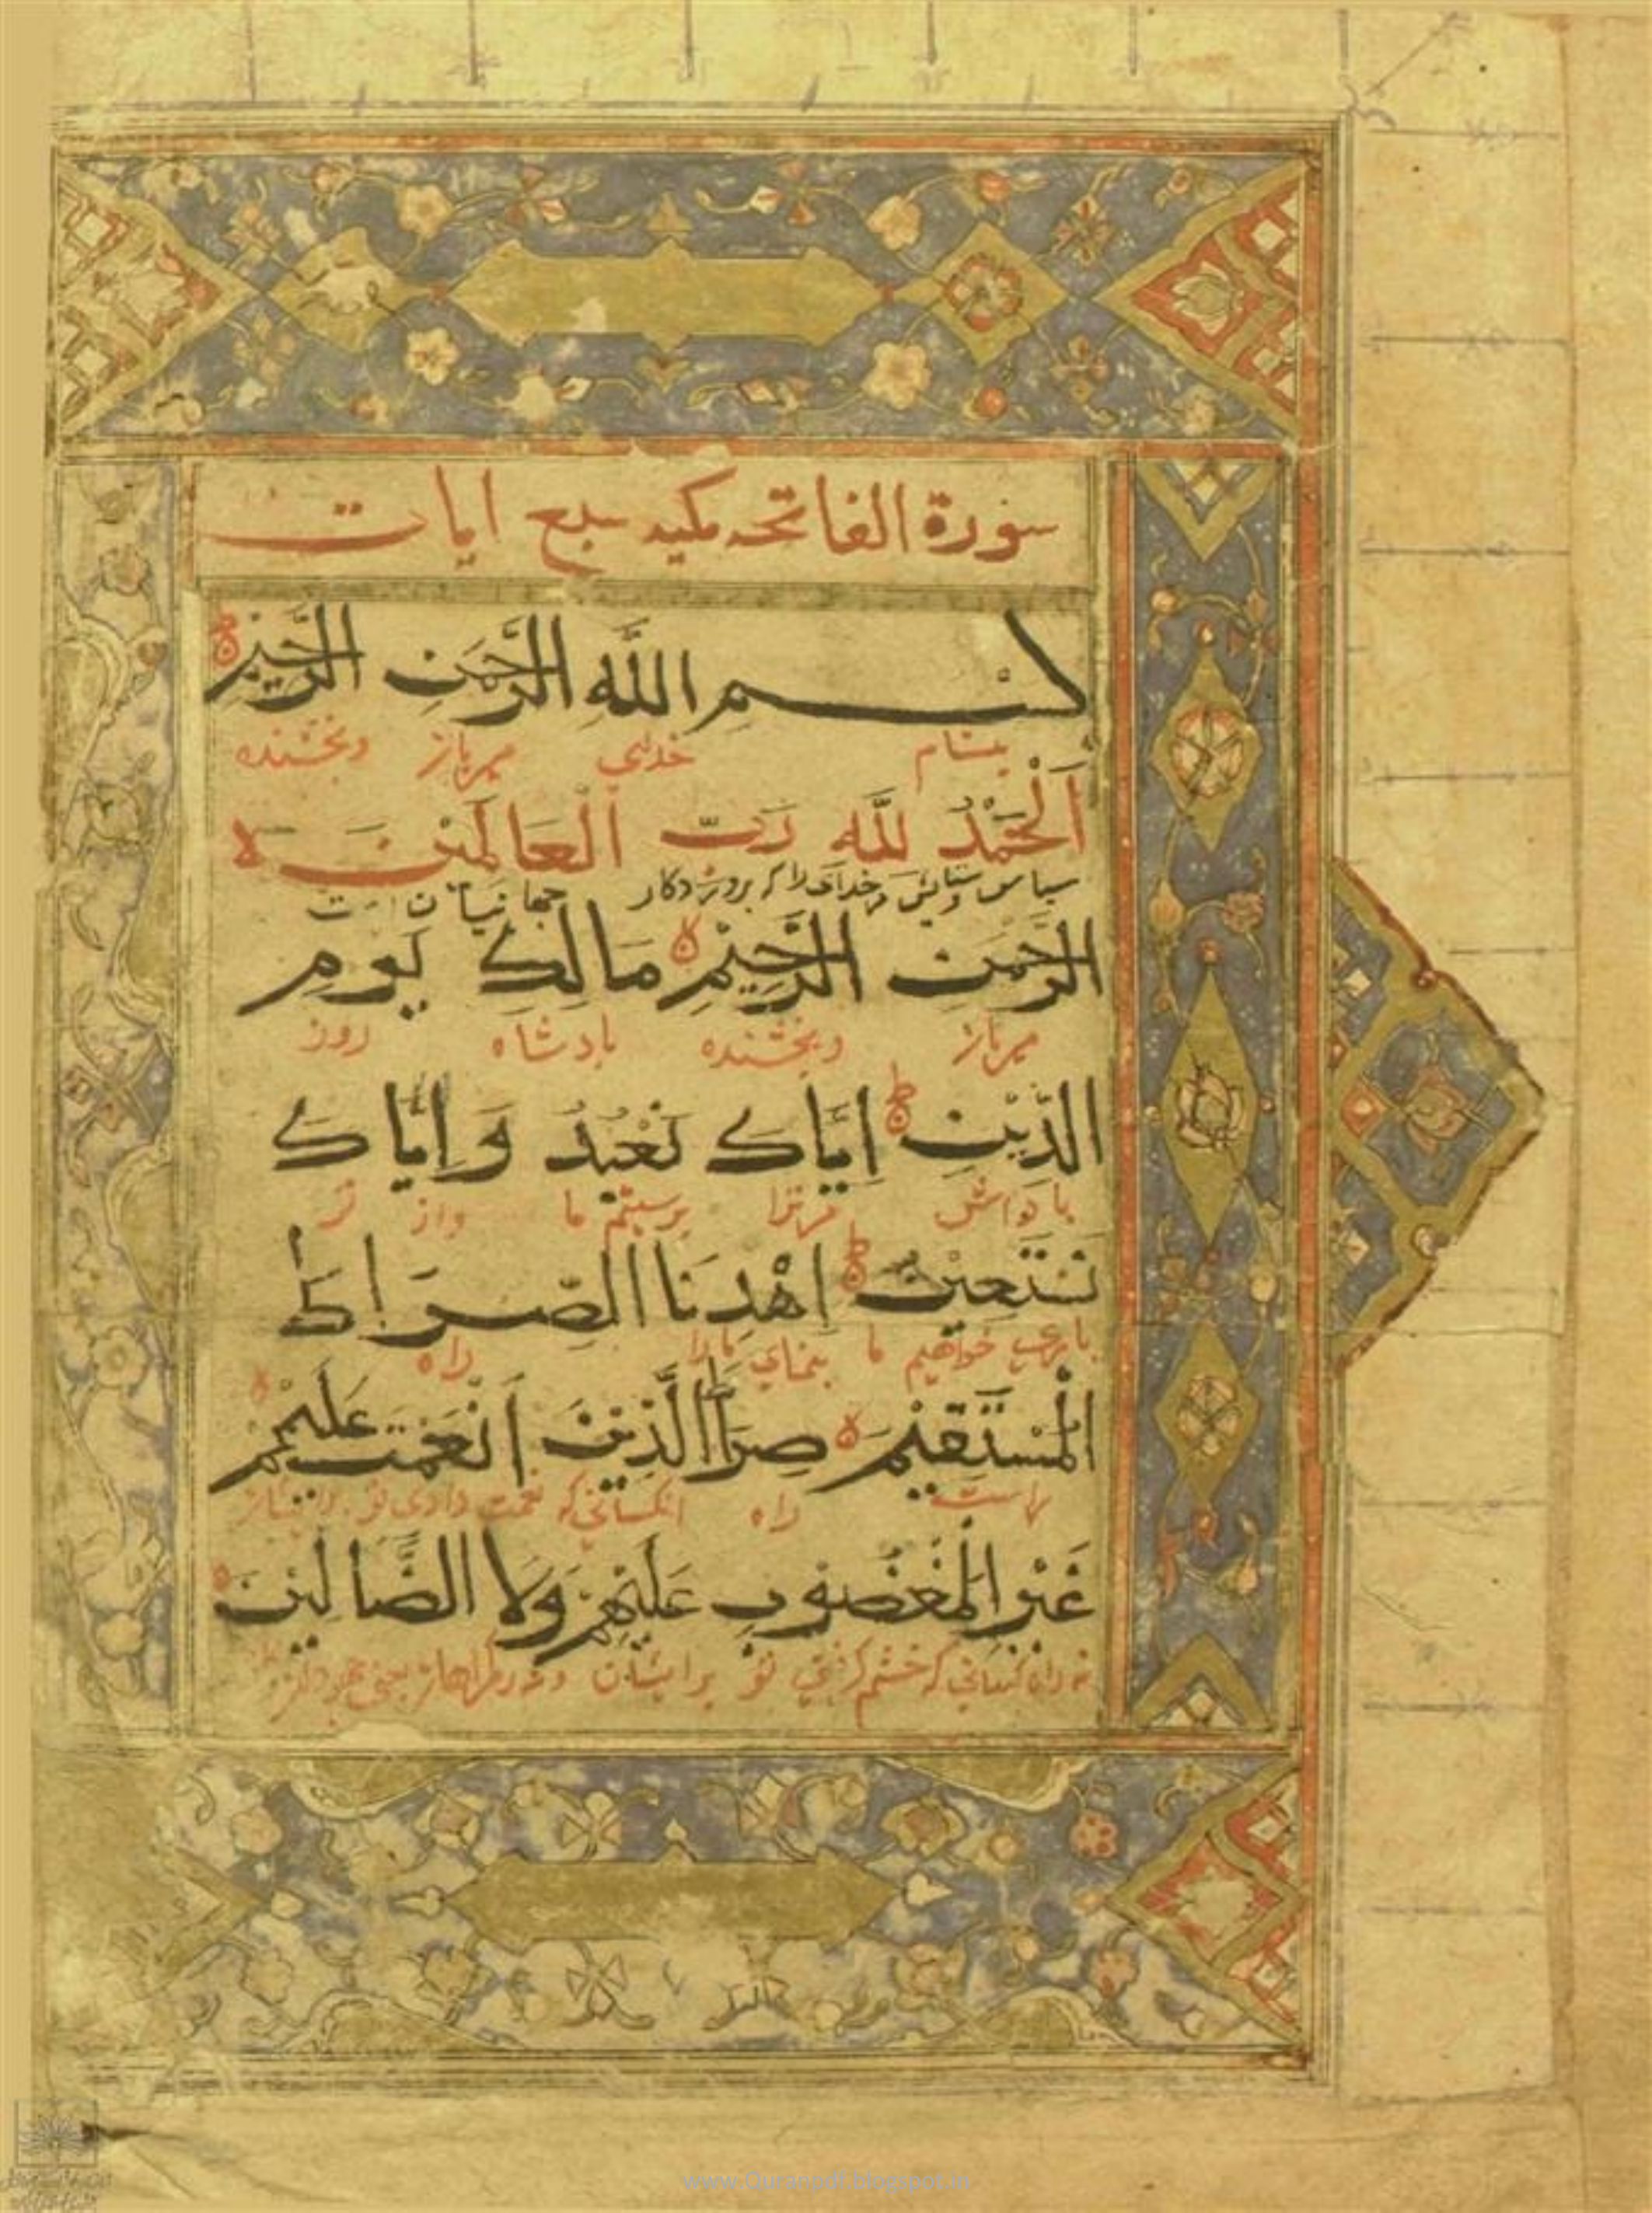 سورة الفاتحه مكيه سبع ايات
بِسْمِ اللَّهِ الرَّحْمَنِ الرَّحِيْمِ
بنام خدای مهربان وبخشنده
اَلْحَمْدُ لِلَّهِ رَبِّ الْعَالَمِيْنَ
سپاس وستایش مر خدای را که پروردکار
جهانیان است
الرَّحْمَنِ الرَّحِيْمِ مَالِكِ يَوْمِ
مهربان وبخشنده پادشاه روز
الدِّيْنِ اِيَّاكَ نَعْبُدُ وَاِيَّاكَ
پاداش مر ترا پرستیم ما واز تو
نَسْتَعِيْنُ اِهْدِنَا الصِّرَاطَ
یاری خواهیم ما بنمای ما را راه
الْمُسْتَقِيْمَ صِرَاطَ الَّذِيْنَ اَنْعَمْتَ عَلَيْهِمْ
راست راه انکسانی که نعمت دادی تو
غَيْرِ الْمَغْضُوْبِ عَلَيْهِمْ وَلَا الضَّالِّيْنَ
نه راه کسانی که خشم کرفتی تو بر ایشان
www.Quranpdf.blogspot.in